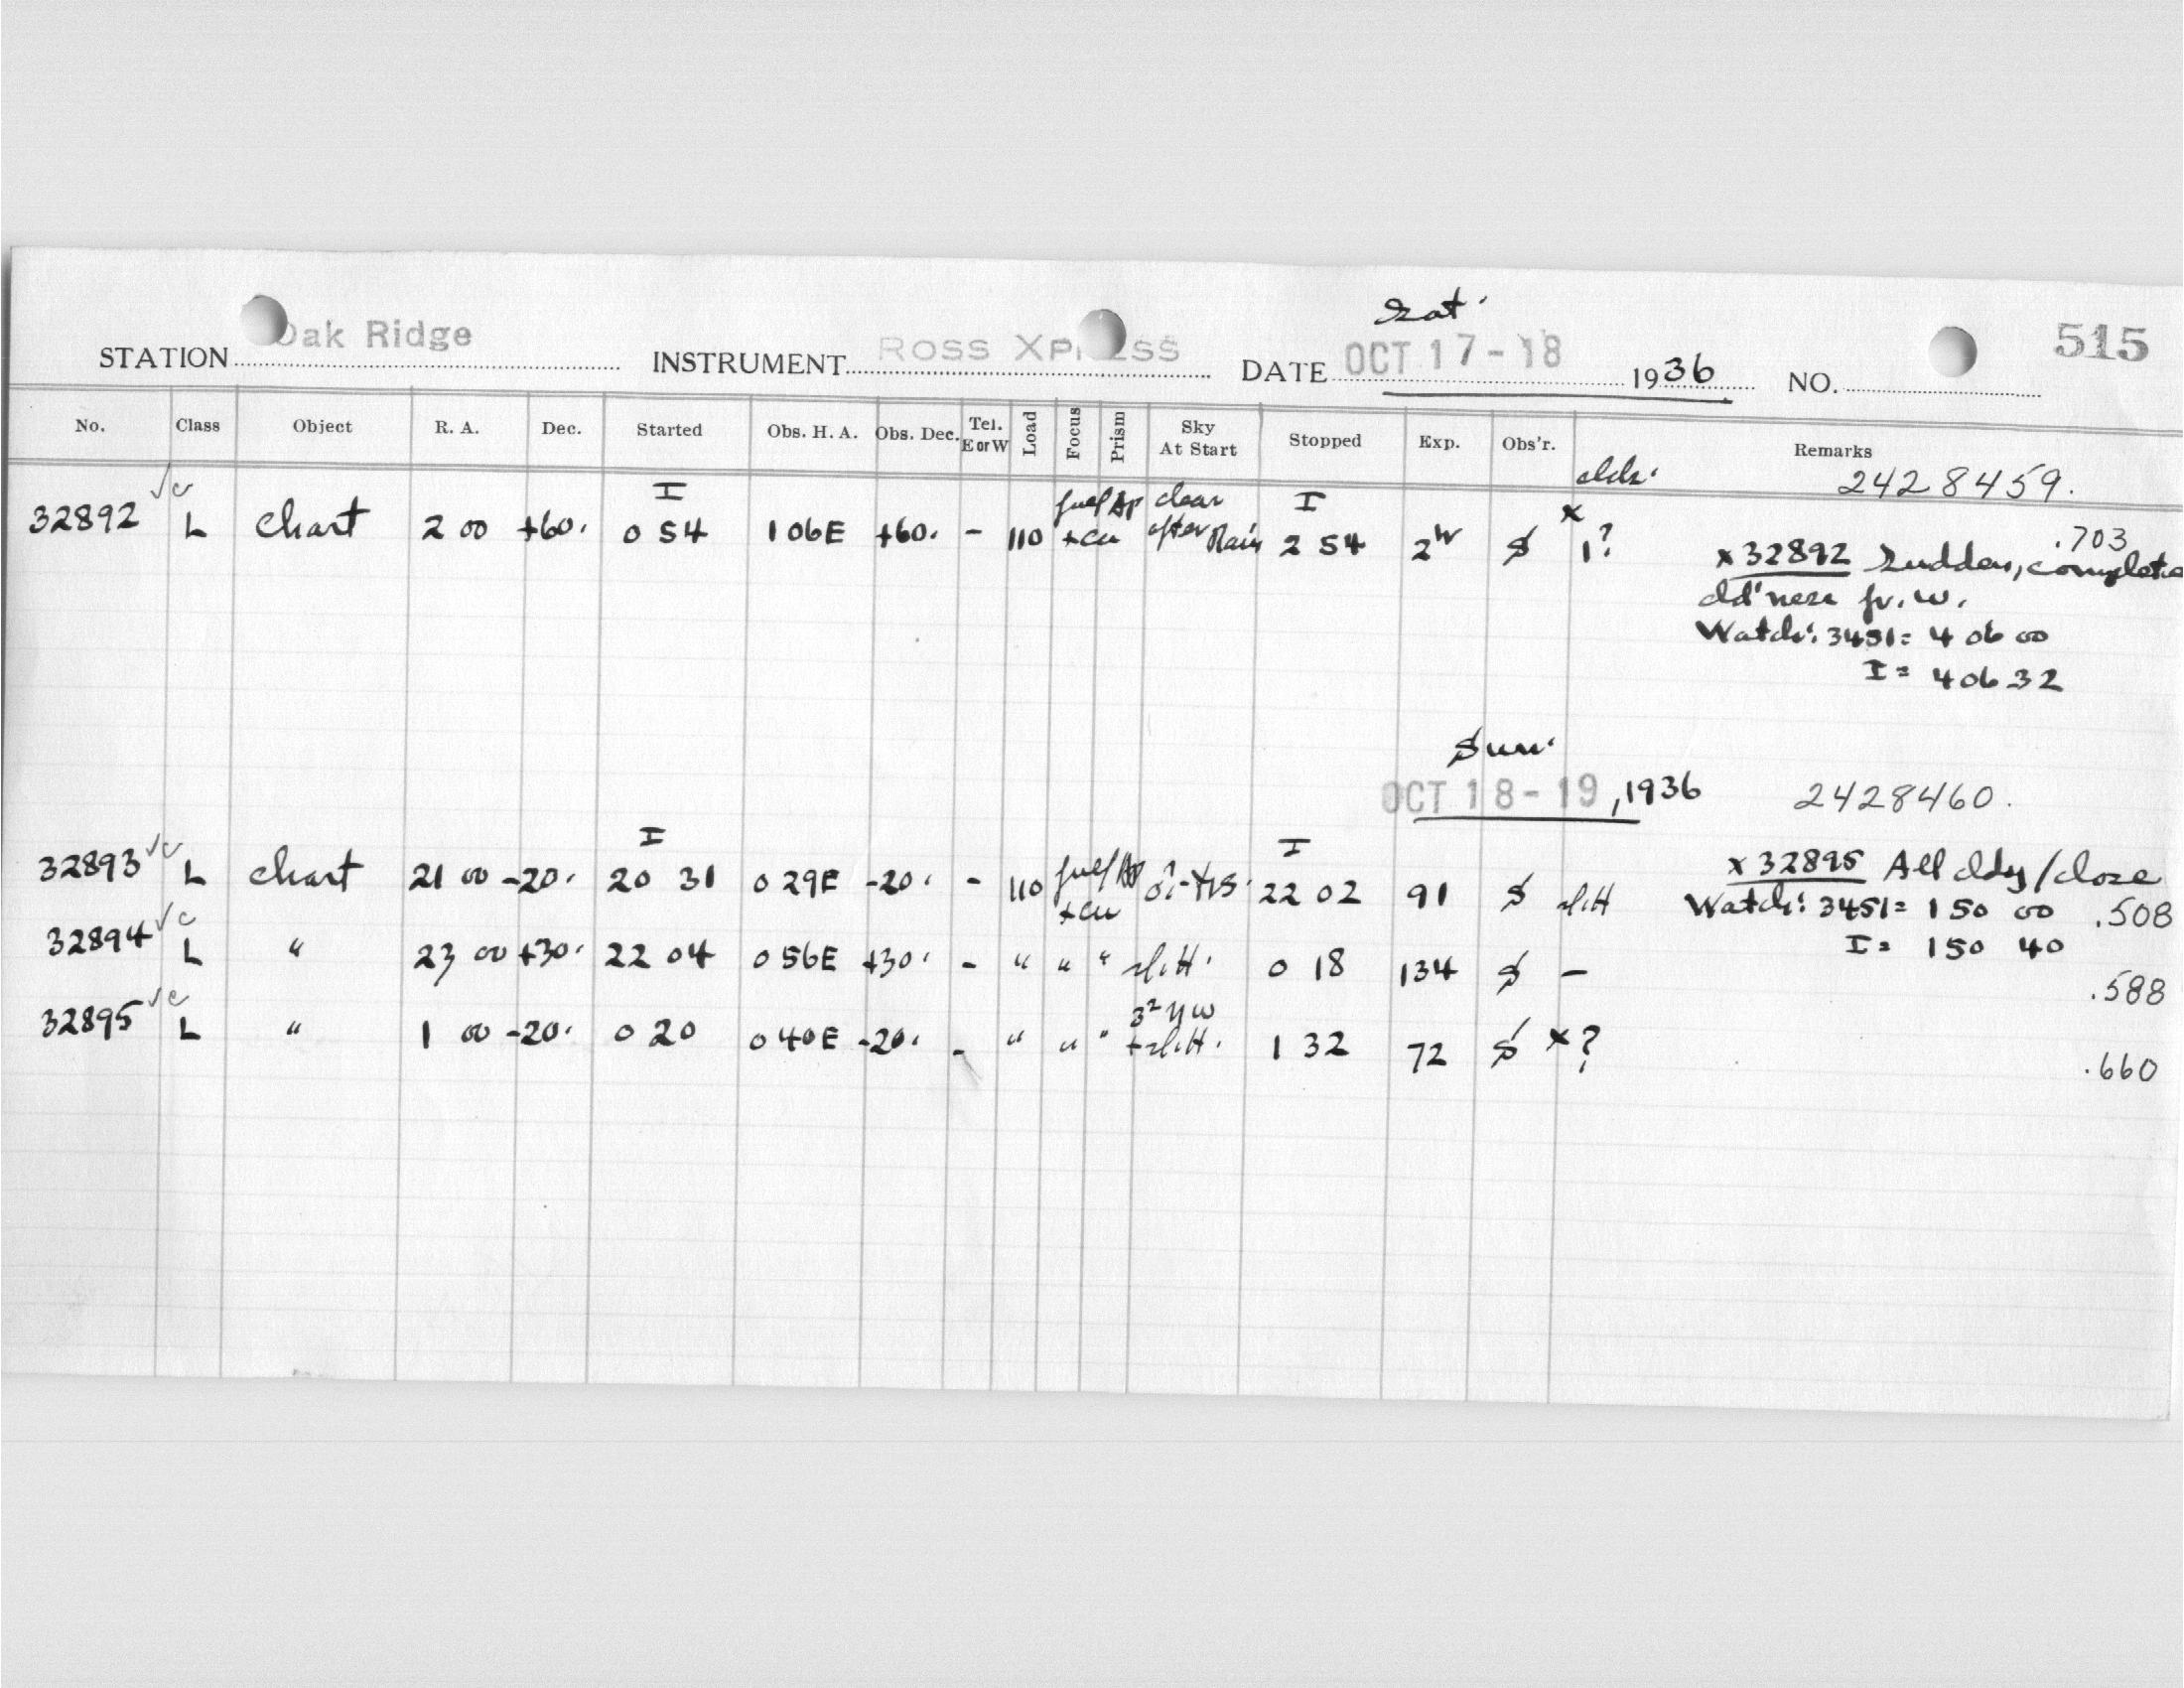 Sat.
STATION Oak Ridge INSTRUMENT ROSS XPRESS DATE OCT 17-18 1936 NO. 515
No. Class Object R. A. Dec. Started Obs. H. A. Obs. Dec. Tel. E or W Load Focus Prism Sky At Start Stopped Exp. Obs'r. Remarks
clds. 2428459.
I I
32892 √c L Chart 2 00 +60. 0 54 1 06E +60. - 110 full Ap + cu clear after Rain 2 54 2 S x 1? .703
x 32892 Sudden, complete
cld'ness fr. W.
Watch: 3451 = 4 06 00
I = 4 06 32
Sun.
OCT 18-19, 1936 2428460.
I I
32893 √c L Chart 21 00 -20. 20 31 0 29E -20. - 110 full Ap + cu 22 02 91 S sl.H .508
x 32895 All cldy/close
Watch: 3451 = 1 50 00
I = 1 50 40
32894 √c L " 23 00 +30. 22 04 0 56E +30. - " " " sl.H. 0 18 134 S - .588
32895 √c L " 1 00 -20. 0 20 0 40E -20. - " " " + sl.H. 1 32 72 S x ? .660